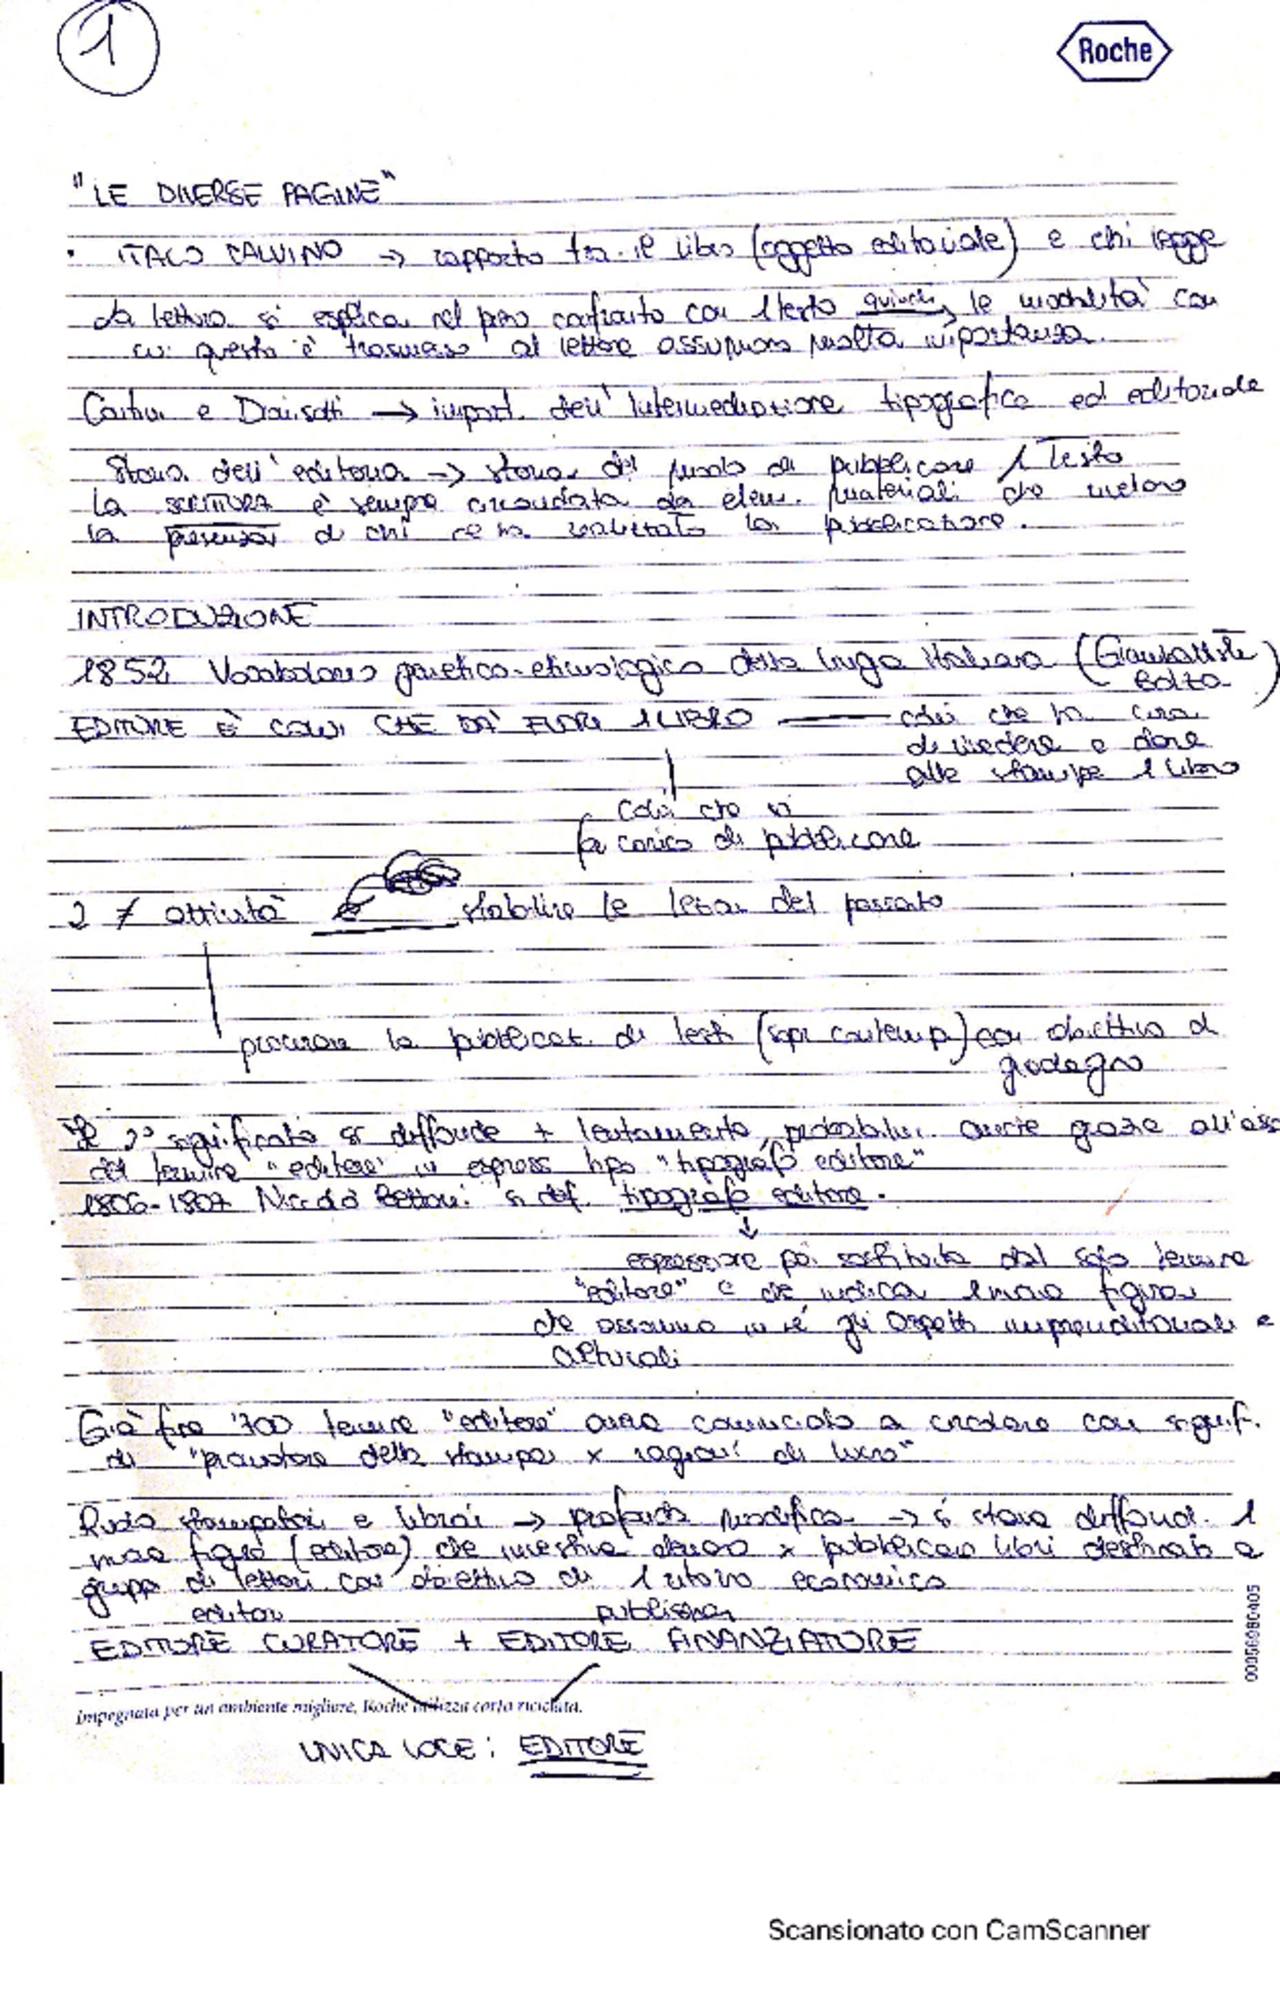 1
Roche
"LE DIVERSE PAGINE"
· ITALO CALVINO → rapporto tra il libro (oggetto editoriale) e chi legge
la lettura si esplica nel pieno confronto con 1 testo quindi le modalità con
cui questo è trasmesso al lettore assumono molta importanza.
e → import. dell'intermediazione tipografica ed editoriale
Storia dell'editoria → storia del modo di pubblicare 1 Testo
La SCRITTURA è sempre circondata da elem. materiali che
la presenza di chi ne ha la pubblicazione.
INTRODUZIONE
1852 Vocabolario genetico-etimologico della lingua Italiana (Giambattista
Bolza)
EDITORE È COLUI CHE DÀ FUORI 1 LIBRO — colui che ha cura
di rivedere e dare
alle stampe 1 libro
Colui che si
fa carico di pubblicare
2 ≠ attività stabilire le del passato
procurare la pubblicaz. di testi (sopr contemp) con obiettivo di
guadagno
Il 2° significato si diffonde + lentamente, probabilm. anche grazie all'
del termine "editore" in espress tipo "tipografo editore"
1806-1807 Niccolò Bettoni si def. tipografo editore.
↓
espressione poi sostituita dal solo termine
"editore" e che indica 1 nuova figura
che assomma in sé gli aspetti imprenditoriali e
culturali
Già fine '700 termine "editore" aveva cominciato a circolare con signif.
di "promotore della stampa x ragioni di lucro"
Ruolo stampatori e librai → profonda modifica → si stava diffond. 1
nuova figura (editore) che investiva denaro x pubblicare libri destinati a
gruppi di lettori con obiettivo di 1 ritorno economico
editor publisher
EDITORE CURATORE + EDITORE FINANZIATORE
Impegnata per un ambiente migliore, Roche utilizza carta riciclata.
UNICA VOCE: EDITORE
Scansionato con CamScanner